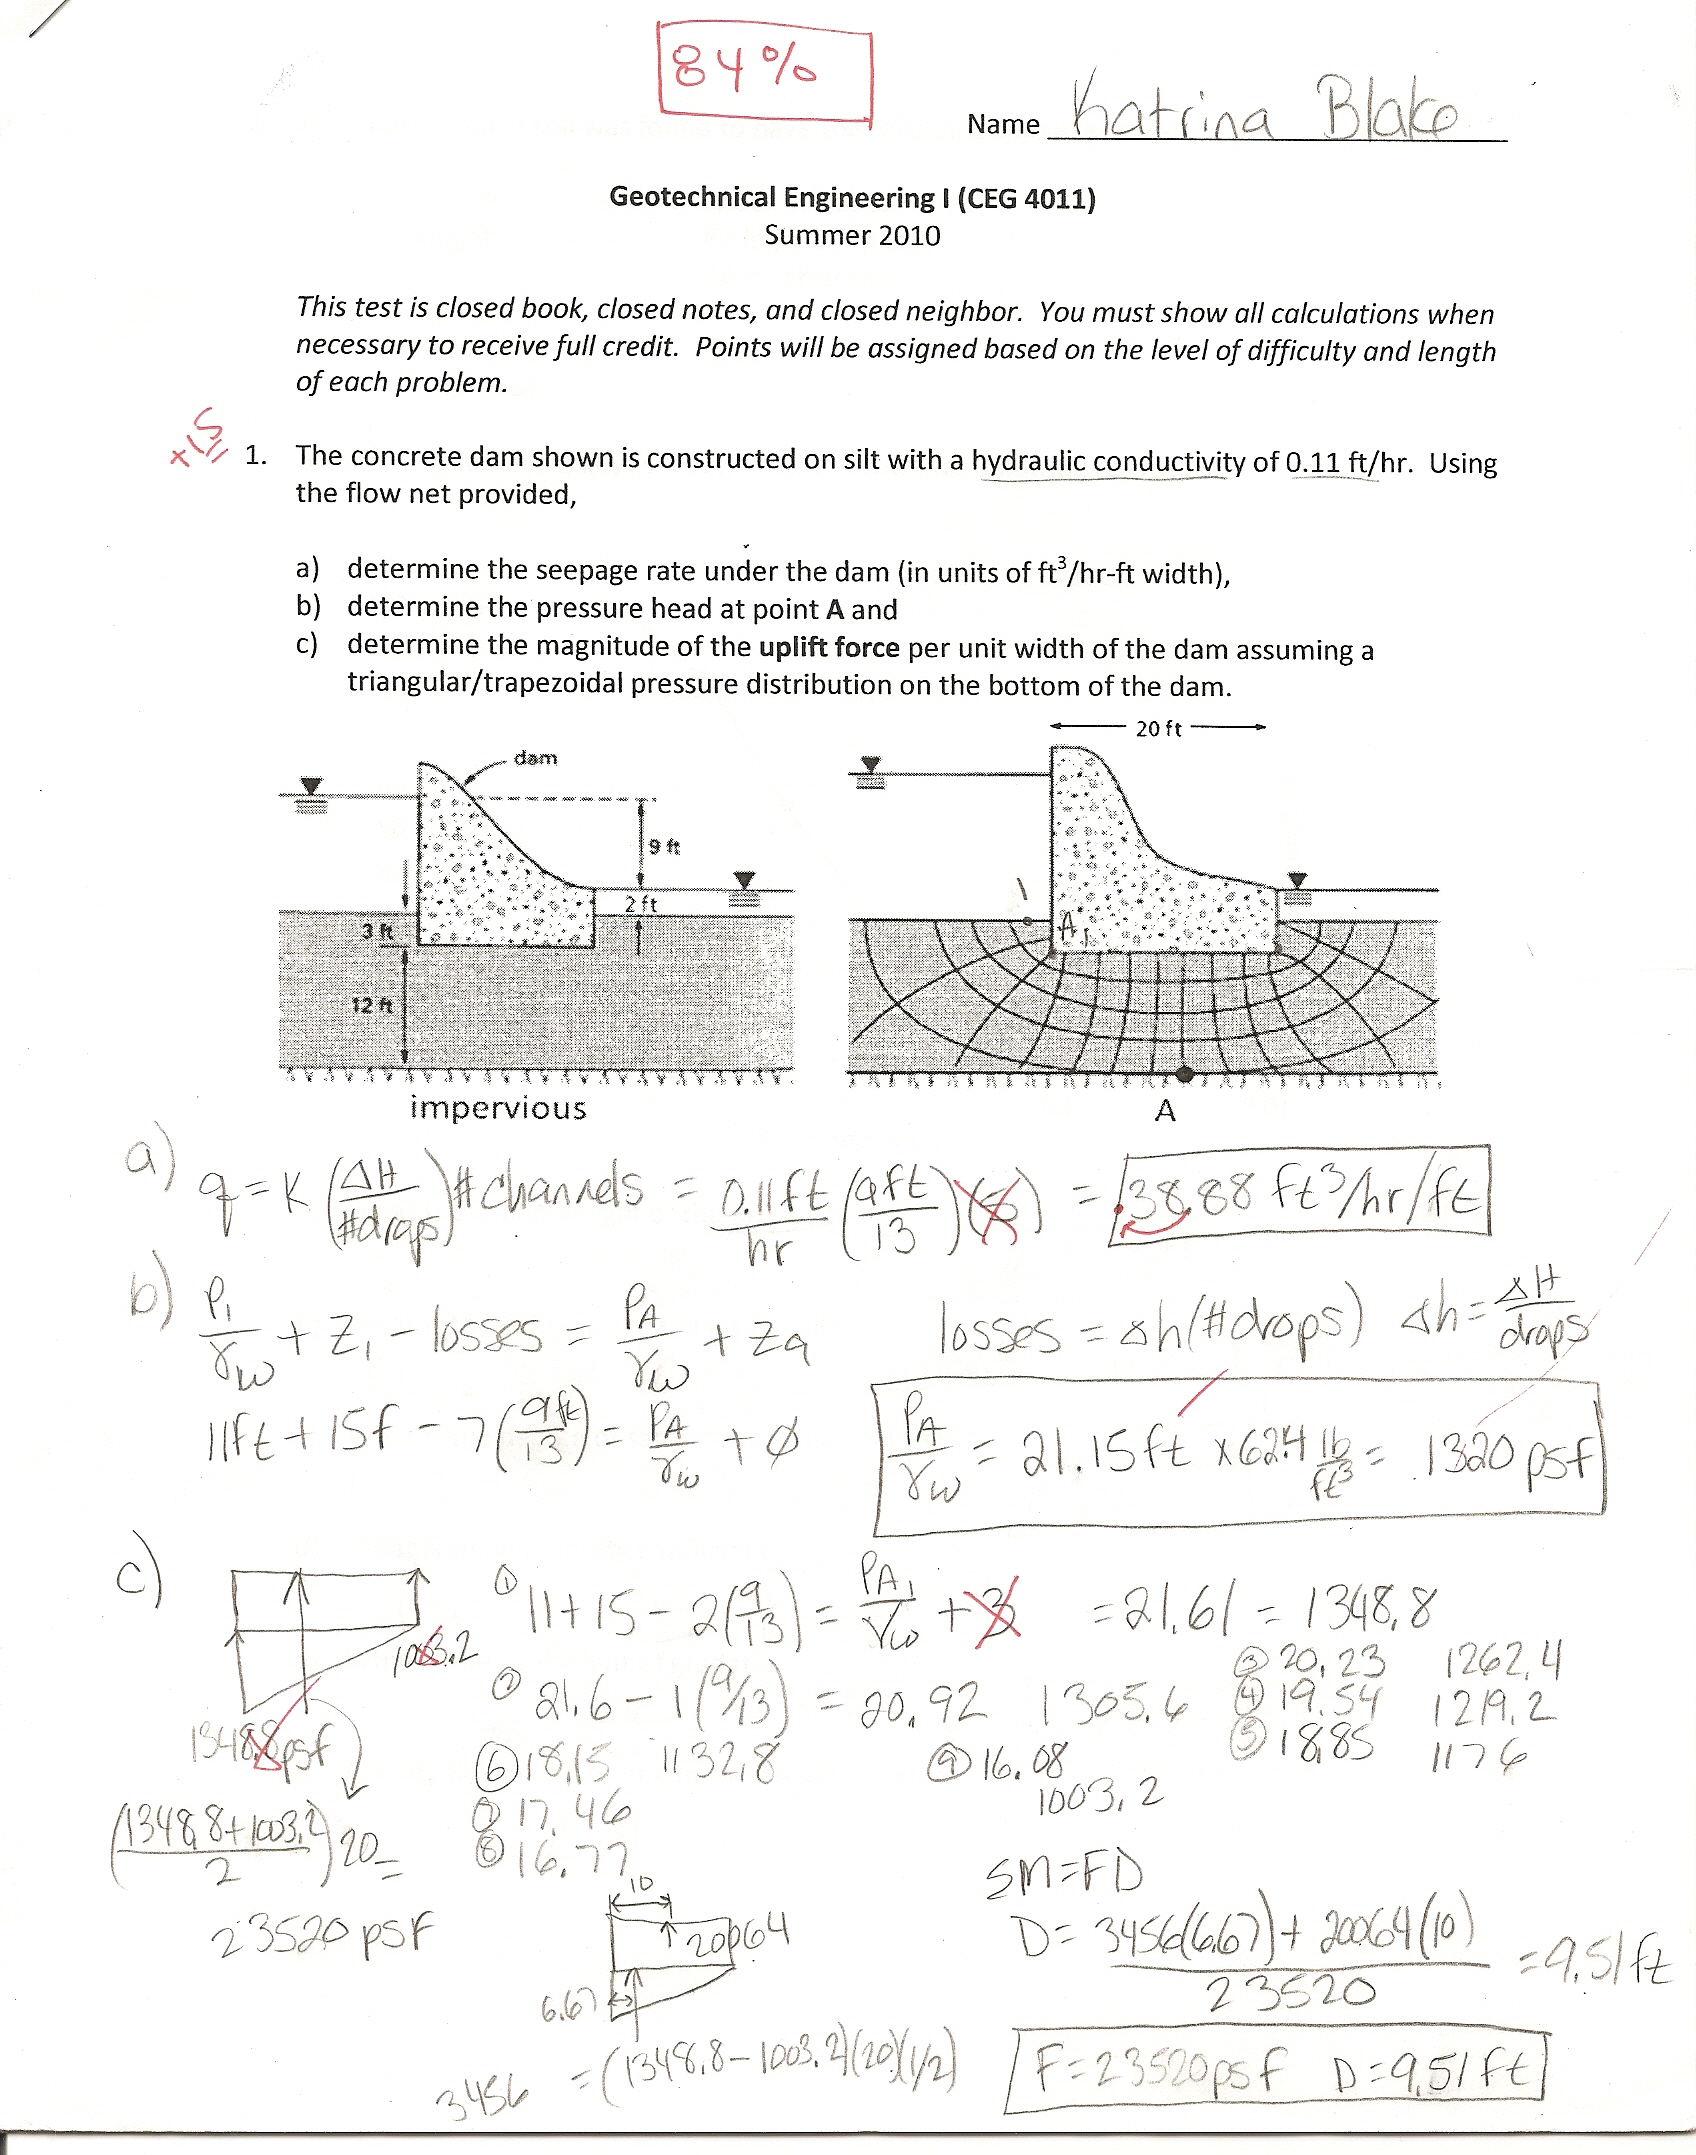 84%
Name Katrina Blake
Geotechnical Engineering I (CEG 4011)
Summer 2010
This test is closed book, closed notes, and closed neighbor. You must show all calculations when
necessary to receive full credit. Points will be assigned based on the level of difficulty and length
of each problem.
+15
1. The concrete dam shown is constructed on silt with a hydraulic conductivity of 0.11 ft/hr. Using
the flow net provided,
a) determine the seepage rate under the dam (in units of ft³/hr-ft width),
b) determine the pressure head at point A and
c) determine the magnitude of the uplift force per unit width of the dam assuming a
triangular/trapezoidal pressure distribution on the bottom of the dam.
dam
9 ft
2 ft
3 ft
12 ft
impervious
20 ft
1
A₁
A
a) q = K (ΔH/#drops) #channels = 0.11ft/hr (9ft/13) = .38.88 ft³/hr/ft
b) P₁/γw + Z₁ - losses = PA/γw + Za losses = Δh(#drops) Δh = ΔH/drops
11ft + 15f - 7(9ft/13) = PA/γw + 0 PA/γw = 21.15ft x 62.4 lb/ft³ = 1320 psf
c) 1003.2
1348.8 psf
① 11+15 - 2(9/13) = PA₁/γw + 3 = 21.61 = 1348.8
② 21.6 - 1(9/13) = 20.92 1305.6
③ 20.23 1262.4
④ 19.54 1219.2
⑤ 18.85 1176
⑥ 18.15 1132.8
⑦ 17.46
⑧ 16.77
⑨ 16.08
1003.2
(1348.8+1003.2/2)20 =
23520 psf
10
20064
6.67
3456 = (1348.8 - 1003.2)(20)(1/2)
SM=FD
D = 3456(6.67) + 20064(10)/23520 = 9.51 ft
F = 23520 psf D = 9.51 ft